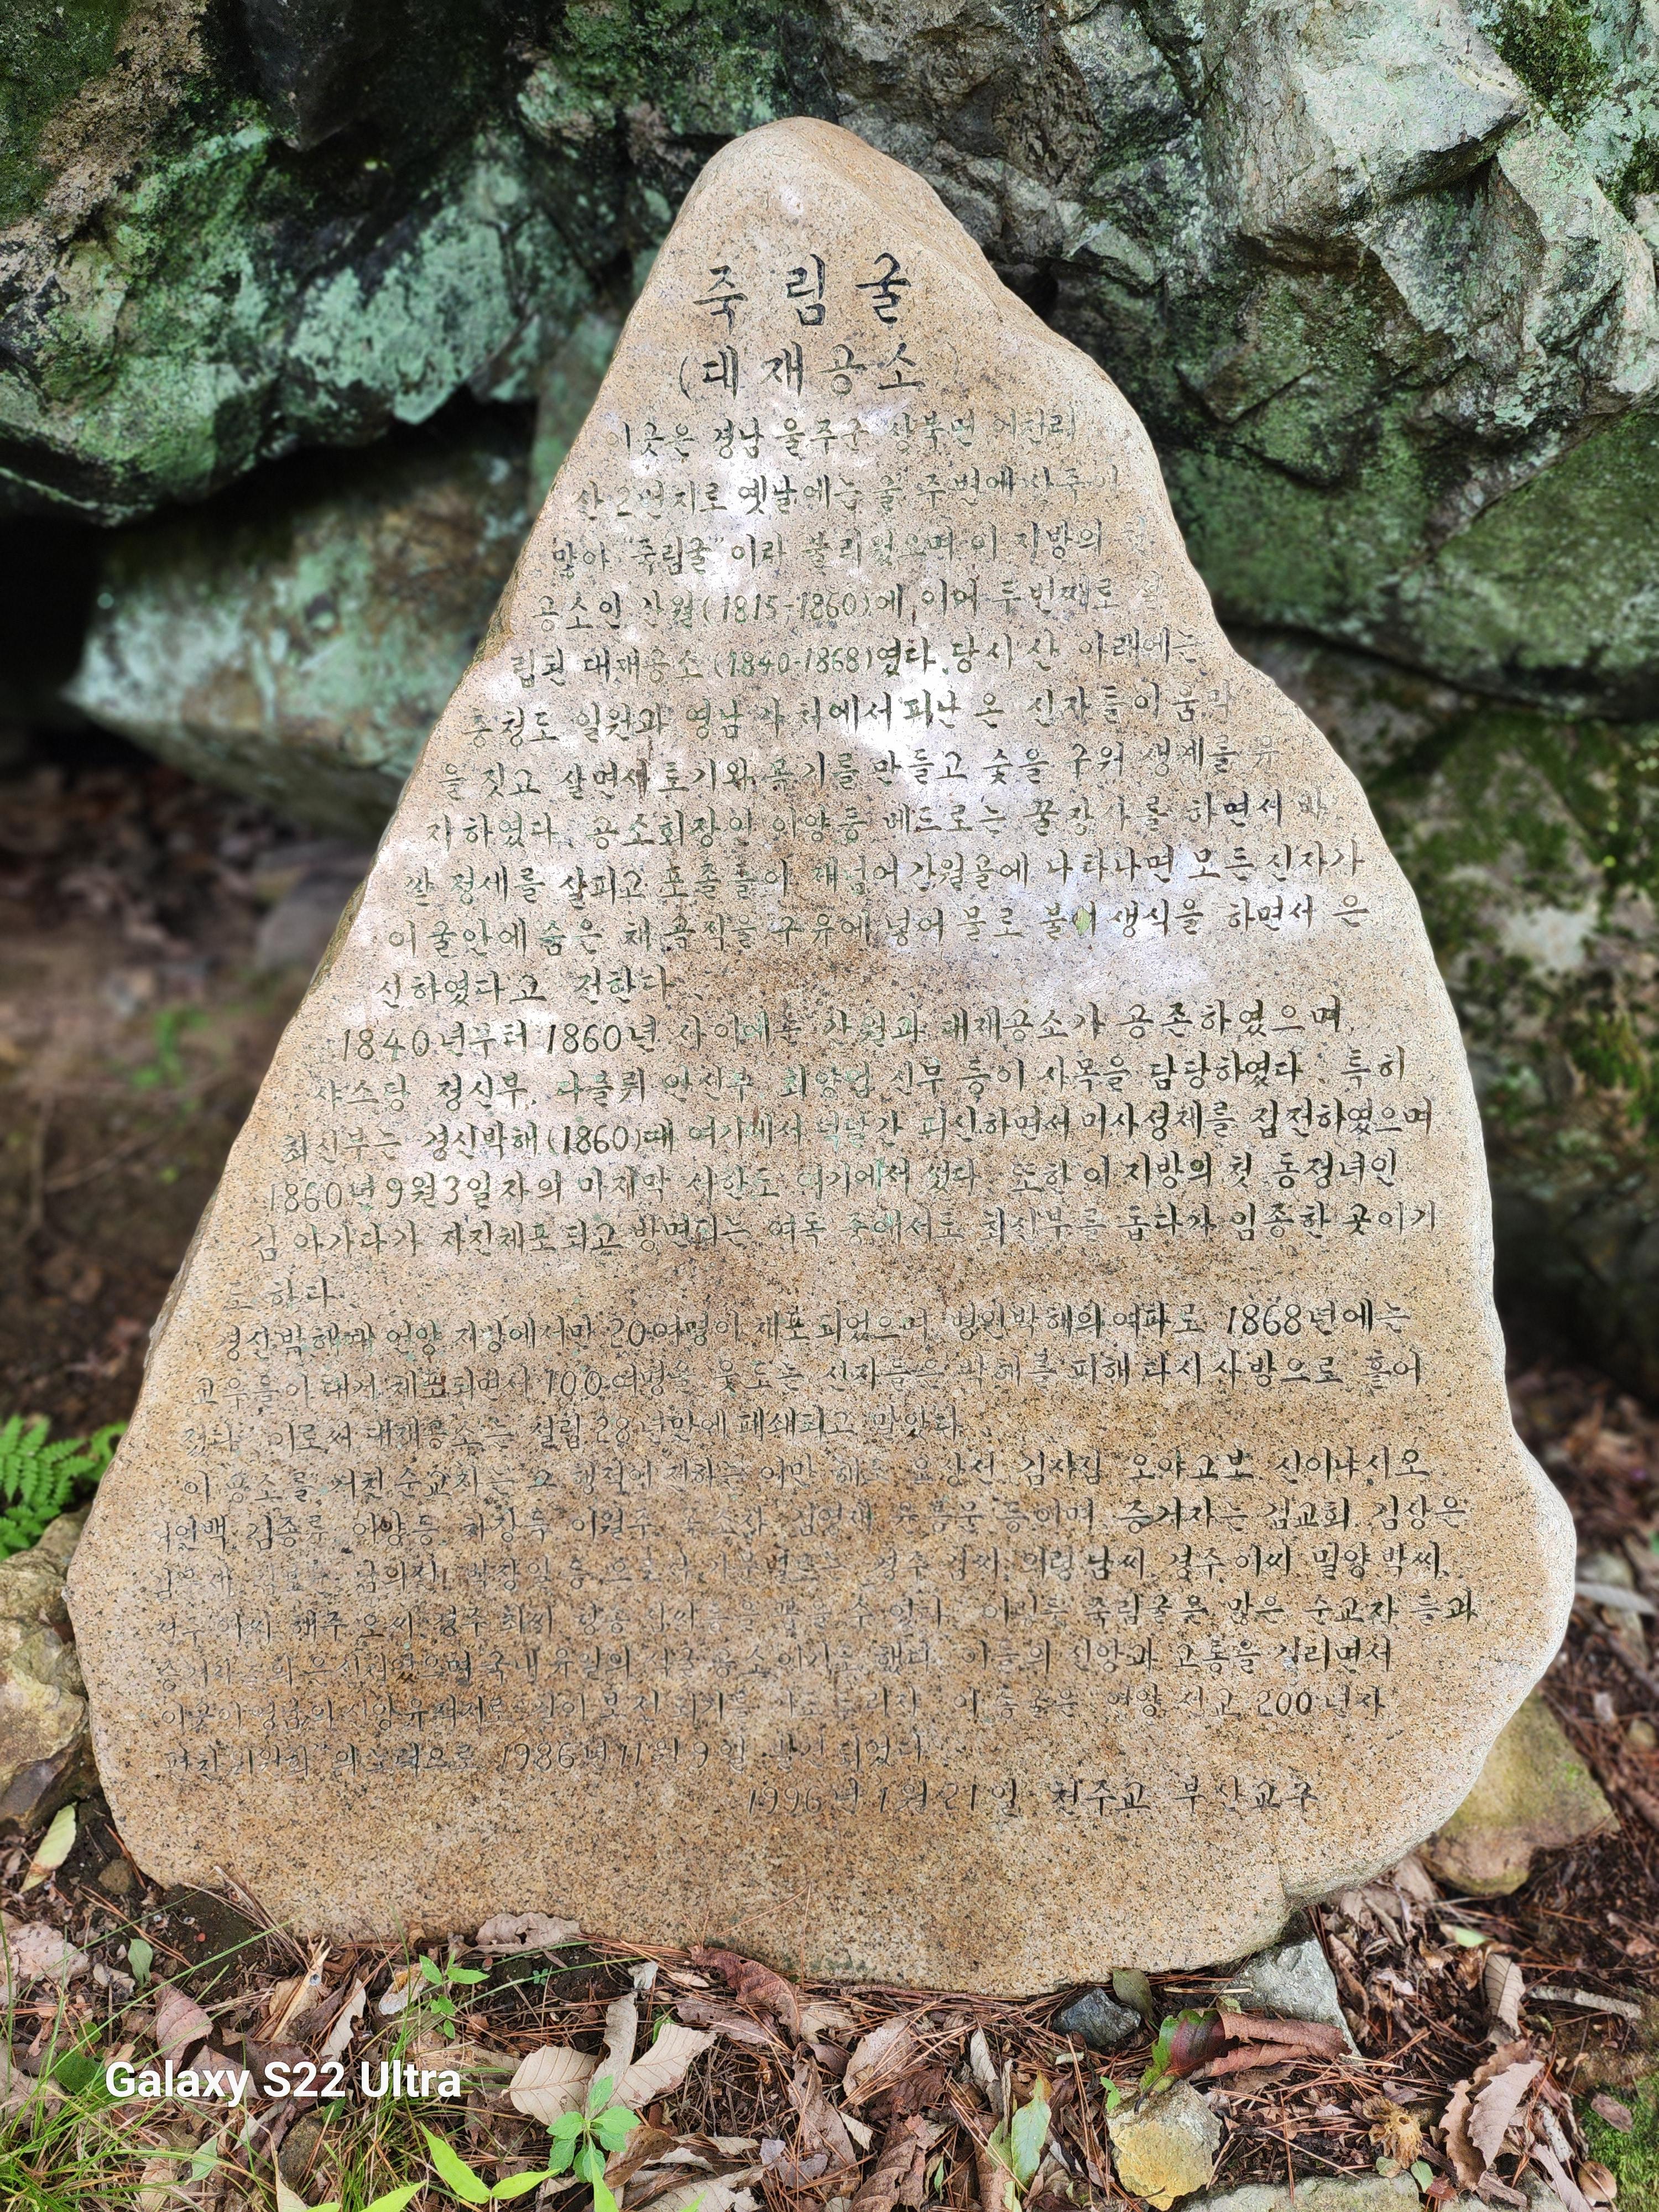 죽림굴
(대재공소
이곳은 경남 울주군 상북면 이천리
산2번지로 옛날에는 굴 주변에 산죽이
많아 "죽림굴"이라 불리웠으며 이 지방의 첫
공소인 간월(1815-1860)에 이어 두번째로
립된 대재공소(1840-1868)였다. 당시 산 아래에는
충청도 일원과 영남 각처에서 피난 온 신자들이 움막
을 짓고 살면서 토기와 목기를 만들고 숯을 구워 생계를 유
지하였다. 공소회장인 이양등 베드로는 꿀장사를 하면서 바
깥 정세를 살피고 포졸들이 재넘어 간월골에 나타나면 모든 신자가
이 굴안에 숨은 채 곡식을 구유에 넣어 물로 불어 생식을 하면서 은
신하였다고 전한다.
1840년부터 1860년 사이에는 간월과 대재공소가 공존하였으며,
샤스당 정신부, 다블뤼 안신부 최양업 신부 등이 사목을 담당하였다. 특히
최신부는 경신박해(1860)때 여기에서 넉달간 피신하면서 미사성체를 집전하였으며
1860년 9월3일자의 마지막 서한도 여기에서 썼다. 또한 이 지방의 첫 동정녀인
김 아가다가 자진체포되고 방면되는 여독 중에서도 최신부를 돕다가 임종한 곳이기
도 하다.
경신박해때 언양 지방에서만 20여명이 체포되었으며 병인박해의 여파로 1868년에는
교우들이 대거 체포되면서 100여명을 웃도는 신자들은 박해를 피해 다시 사방으로 흩어
졌다. 이로써 대재공소는 설립 28년만에 폐쇄되고 말았다.
이 공소를 거친 순교자는 그 행적이 전하는 이만 해도 김사집 오야고보 신이냐시오
김종륜 이양등 허인백 등이며 증거자는 김교회 김상은
등으로서 가문별로는 경주 김씨 의령 남씨 경주 이씨 밀양 박씨,
이씨 해주 오씨 경주 최씨 등을 꼽을 수 있다. 이렇듯 죽림굴은 많은 순교자 들과
증거자들의 은신처였으며 국내 유일의 석굴 공소이기도 했다. 이들의 신앙과 고통을 기리면서
이곳이 영남의 신앙유적지로 200년사
의 노력으로 1986년 11월 9일 발견되었다.
1996년 1월 21일 천주교 부산교구
Galaxy S22 Ultra